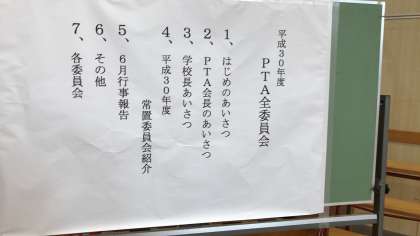 平成３０年度
ＰＴＡ全委員会
１、はじめのあいさつ
２、ＰＴＡ会長のあいさつ
３、学校長あいさつ
４、平成３０年度
常置委員会紹介
５、６月行事報告
６、その他
７、各委員会